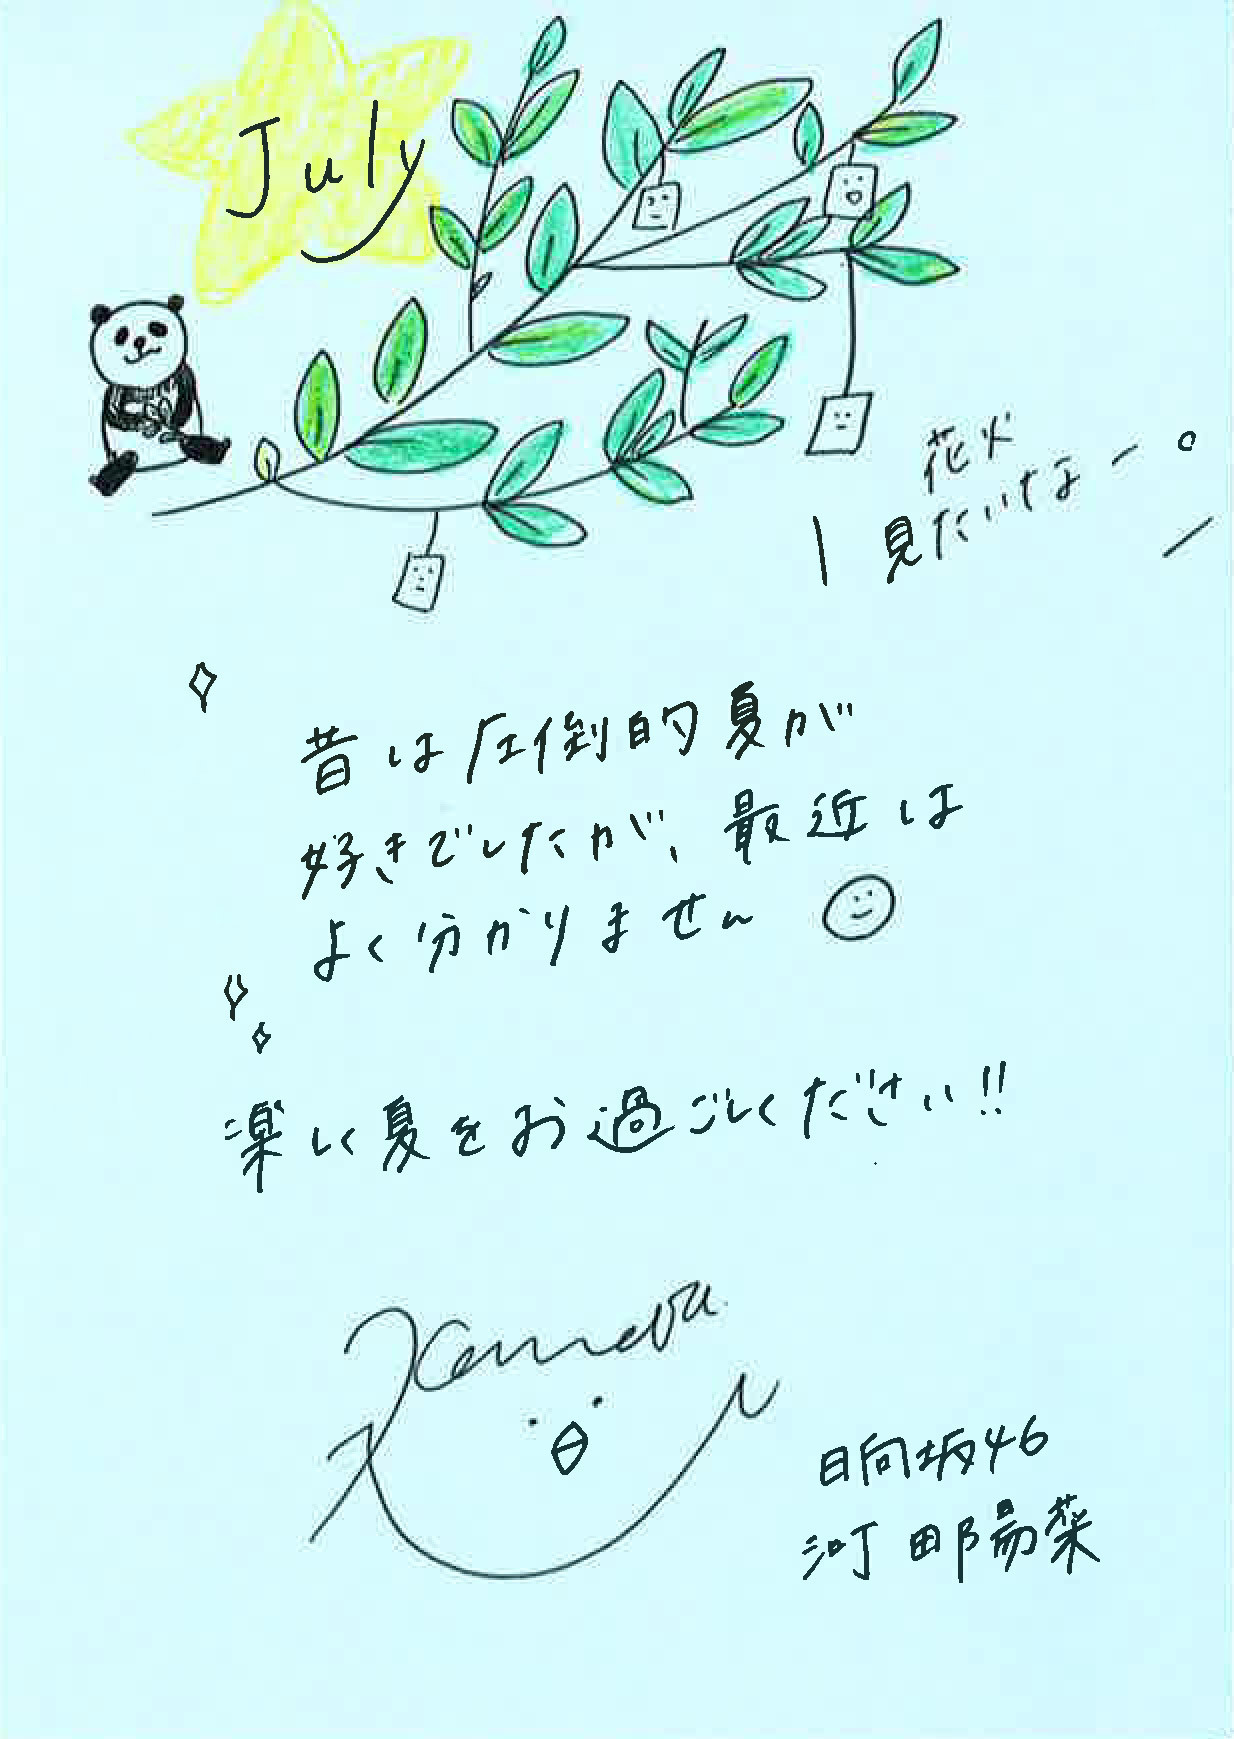 July
花火
見たいなー。
昔は圧倒的夏が
好きでしたが、最近は
よく分かりません
楽しく夏をお過ごしください!!
日向坂46
河田陽菜